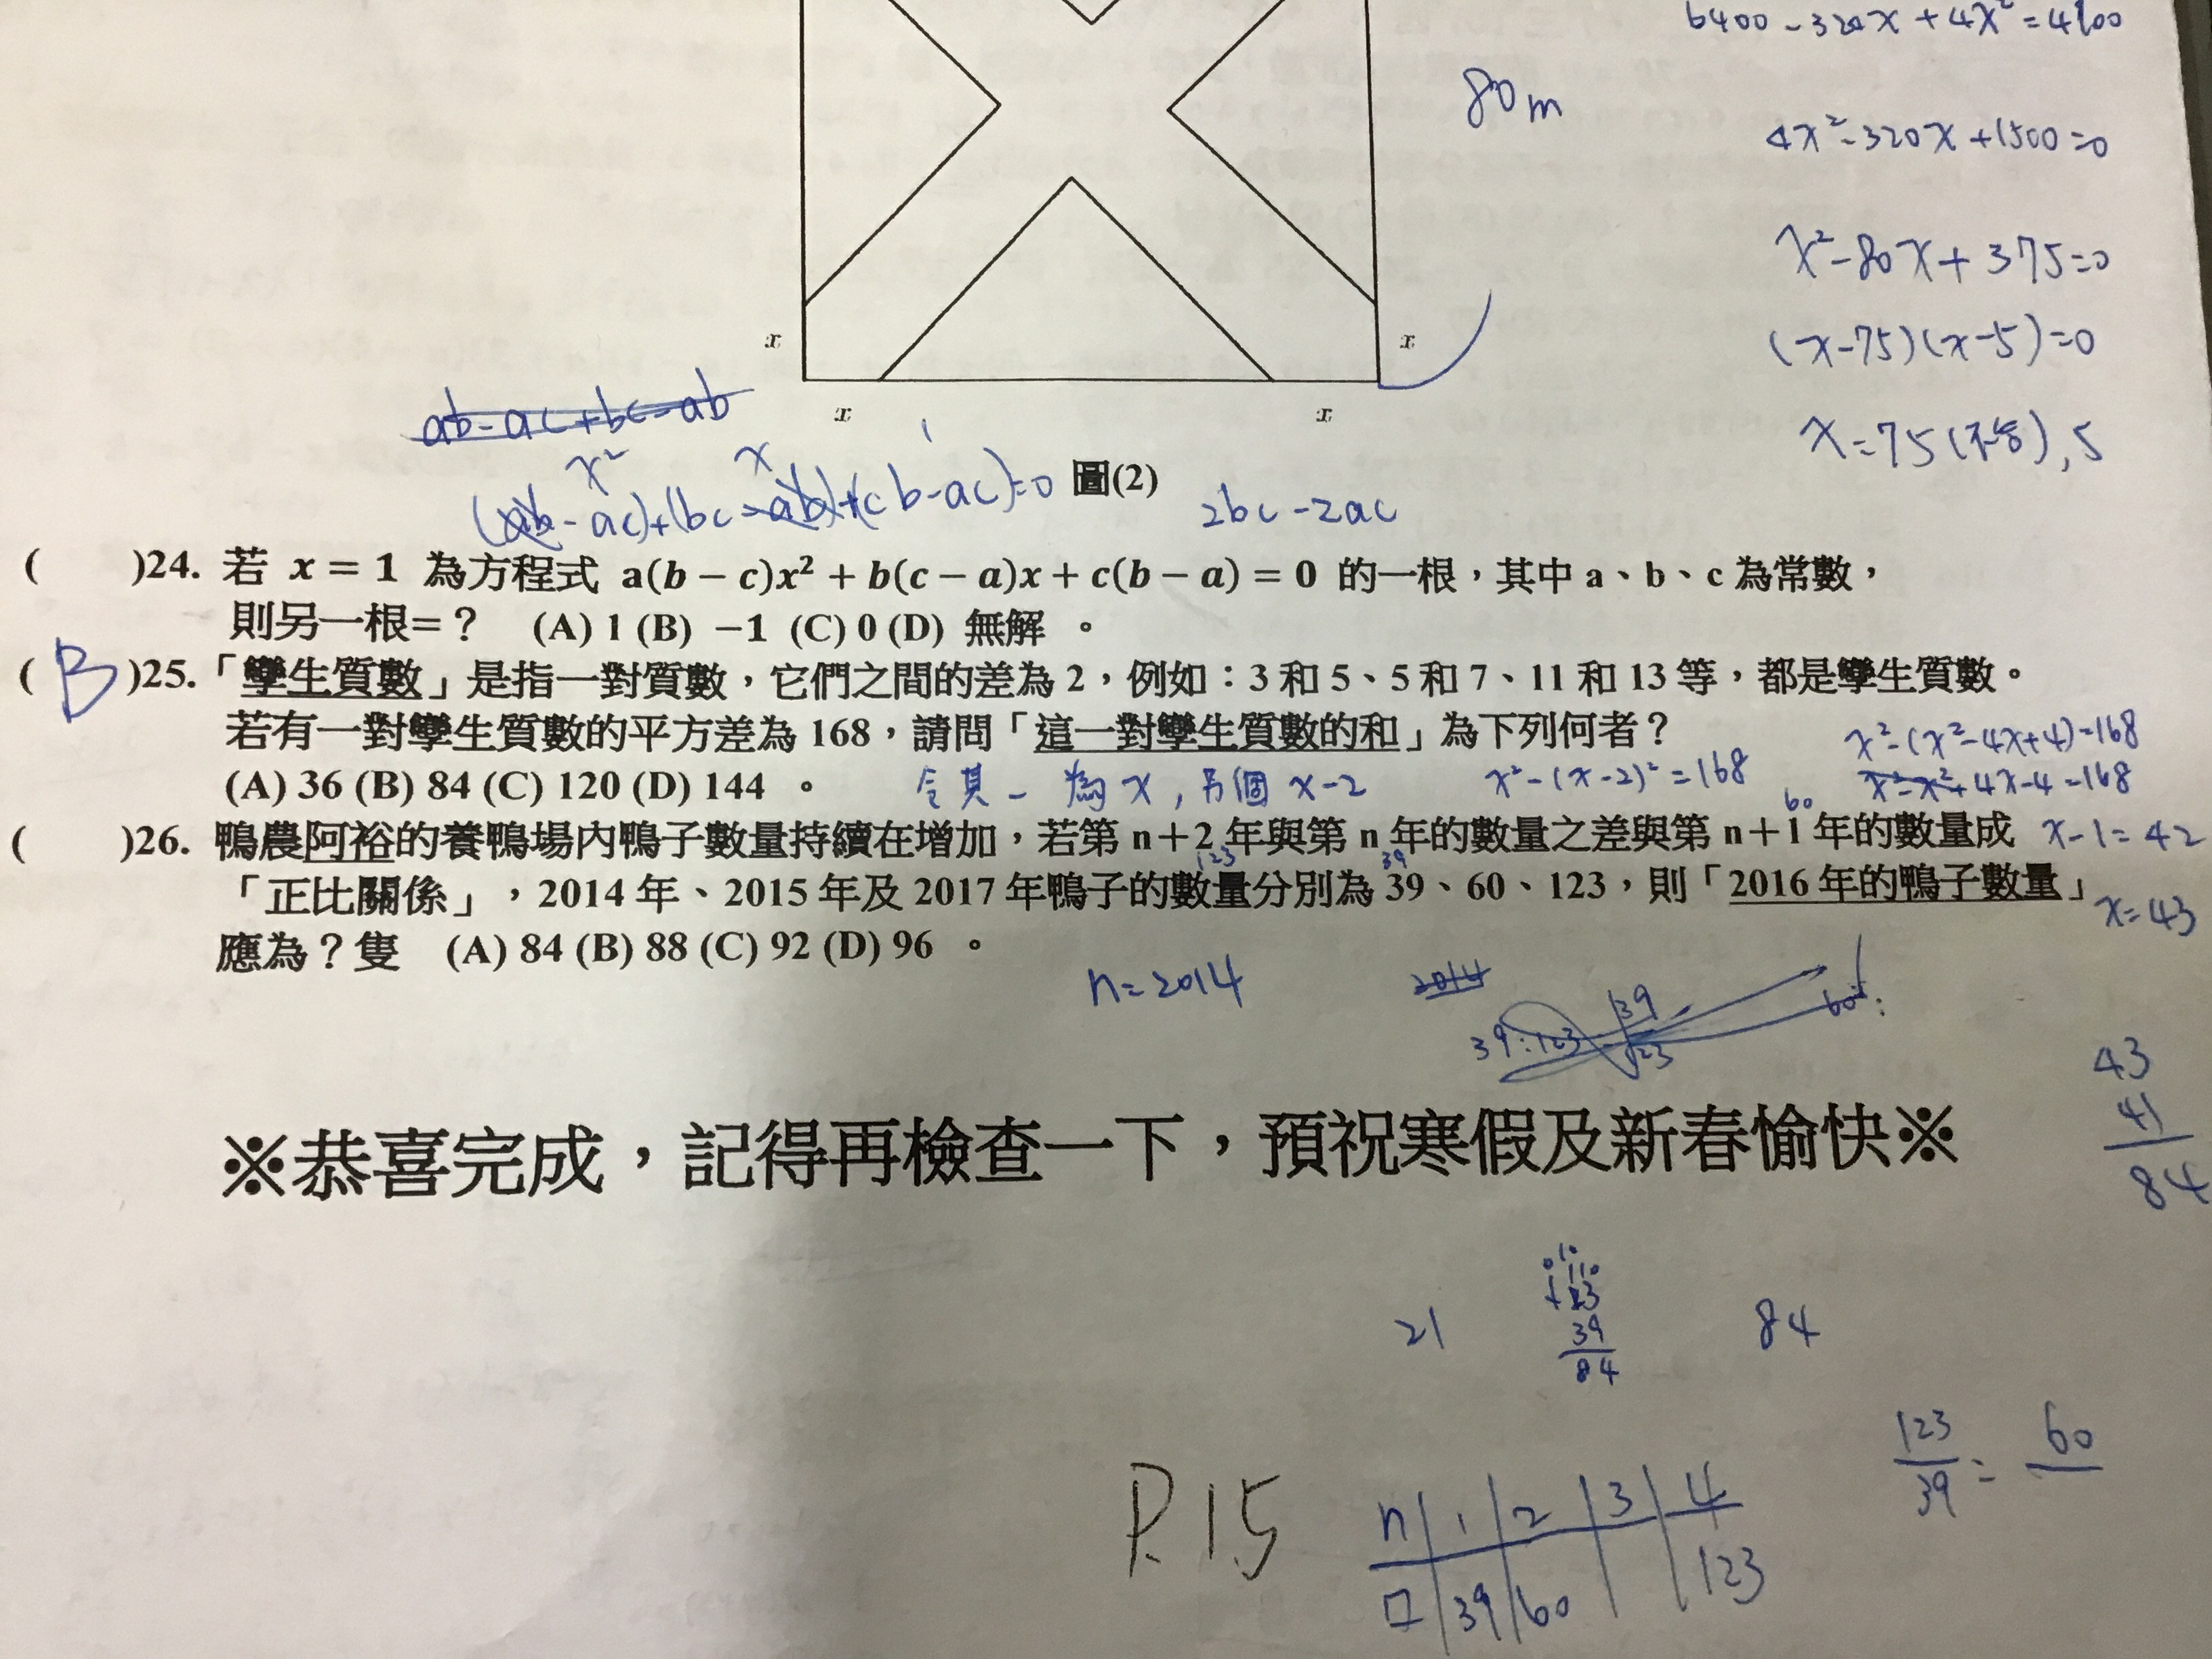 6400-320x+4x²=4900
80m
4x²-320x+1500=0
x²-80x+375=0
(x-75)(x-5)=0
x=75(不合),5
x x
x x
ab-ac+bc-ab
x² x 1
(ab-ac)+(bc-ab)+(cb-ac)=0
圖(2)
2bc-2ac
( )24. 若 x = 1 為方程式 a(b − c)x² + b(c − a)x + c(b − a) = 0 的一根，其中 a、b、c 為常數，
則另一根=？ (A) 1 (B) −1 (C) 0 (D) 無解 。
( B )25.「孿生質數」是指一對質數，它們之間的差為 2，例如：3 和 5、5 和 7、11 和 13 等，都是孿生質數。
若有一對孿生質數的平方差為 168，請問「這一對孿生質數的和」為下列何者？
x²-(x²-4x+4)=168
(A) 36 (B) 84 (C) 120 (D) 144 。
令其一為x，另個x-2
x²-(x-2)²=168
x²-x²+4x-4=168
60
( )26. 鴨農阿裕的養鴨場內鴨子數量持續在增加，若第 n＋2 年與第 n 年的數量之差與第 n＋1 年的數量成
x-1=42
123 39
「正比關係」，2014 年、2015 年及 2017 年鴨子的數量分別為 39、60、123，則「2016 年的鴨子數量」
x=43
應為？隻 (A) 84 (B) 88 (C) 92 (D) 96 。
n=2014
2014
39:123
39
123
60:
43
41
84
※恭喜完成，記得再檢查一下，預祝寒假及新春愉快※
21
39
84
84
123/39=60
P.15
n 1 2 3 4
□ 39 60 123